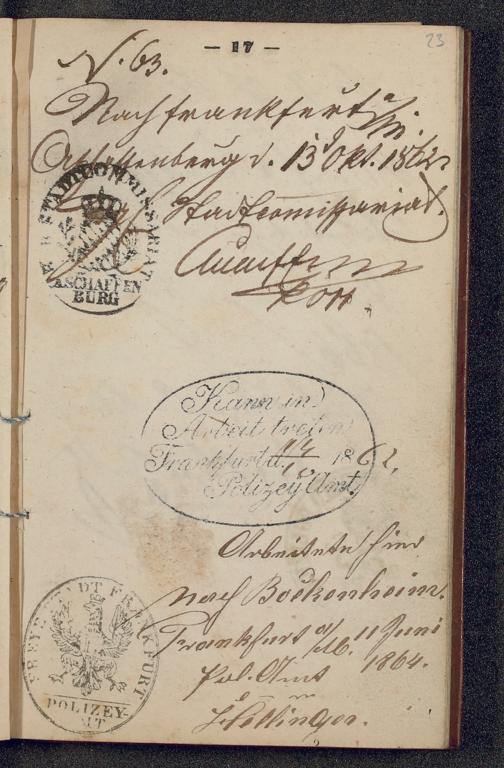 — 17 —
23
N. 63.
Nach Frankfurt a/M.
Aschaffenburg d. 13 Okt. 1862
Stadtcommissariat.
STADTCOMMISSARIAT
ASCHAFFEN
BURG
Kann in
Arbeit treten
Frankfurt d. 14/10 1862.
Polizey Amt.
Arbeitete hier
nach Bockenheim.
Frankfurt a/M. 11 Juni
Pol. Amt 1864.
FREYE STADT FRANKFURT
POLIZEY-
AMT